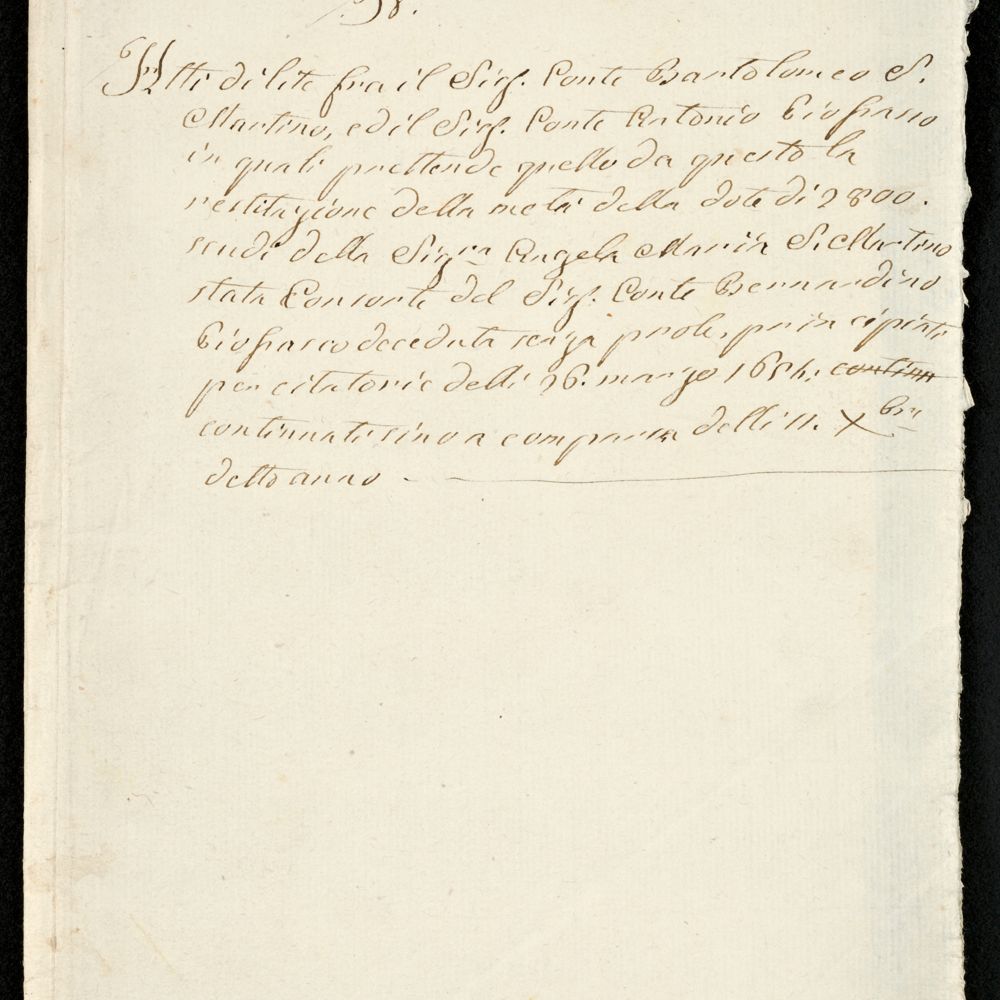 58.
Atti di lite fra il Sig.r Conte Bartolomeo S.
Martino, ed il Sig.r Conte Antonio Piofrasso
in quali prettende quello da questo la
restituzione della metà della dote di 2800.
scudi della Sig.ra Angela Maria S. Martino
stata Consorte del Sig.r Conte Bernardino
Piofrasco deceduta senza prole, principiati
per citatorie delli 26. marzo 1684: continu
continuati sino a comparsa delli 11. Xbre
detto anno